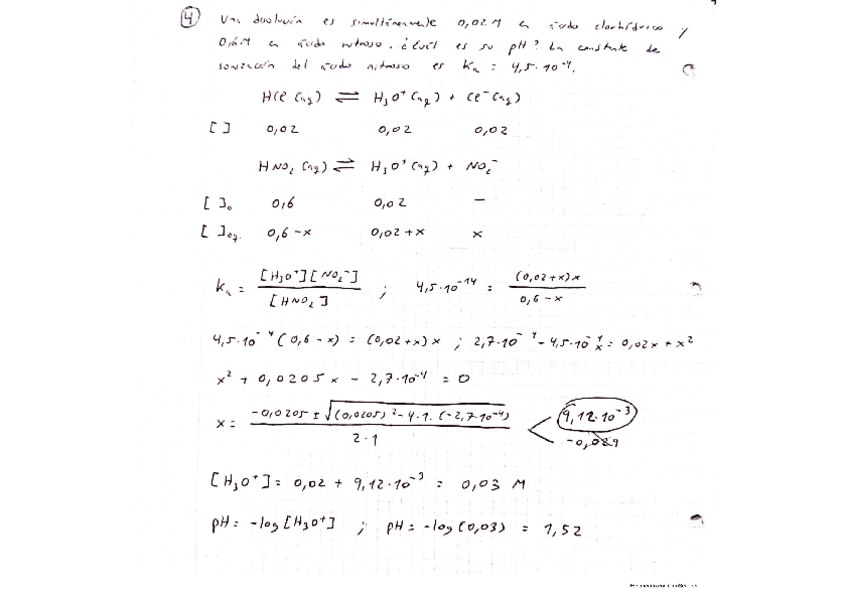 ④ Una disolución es simultáneamente 0,02 M en ácido clorhídrico y
0,6 M en ácido nitroso. ¿Cuál es su pH? La constante de
ionización del ácido nitroso es Ka = 4,5·10⁻⁴.
HCl (aq) ⇌ H₃O⁺ (aq) + Cl⁻ (aq)
[ ] 0,02 0,02 0,02
HNO₂ (aq) ⇌ H₃O⁺ (aq) + NO₂⁻
[ ]₀ 0,6 0,02 —
[ ]eq. 0,6-x 0,02+x x
Ka = [H₃O⁺][NO₂⁻] / [HNO₂] ; 4,5·10⁻¹⁴ = (0,02+x)x / 0,6-x
4,5·10⁻⁴ (0,6-x) = (0,02+x)x ; 2,7·10⁻⁴ - 4,5·10⁻⁴x = 0,02x + x²
x² + 0,0205x - 2,7·10⁻⁴ = 0
x = -0,0205 ± √(0,0205)² - 4·1·(-2,7·10⁻⁴) / 2·1 < 9,12·10⁻³
-0,029
[H₃O⁺] = 0,02 + 9,12·10⁻³ = 0,03 M
pH = -log [H₃O⁺] ; pH = -log (0,03) = 1,52